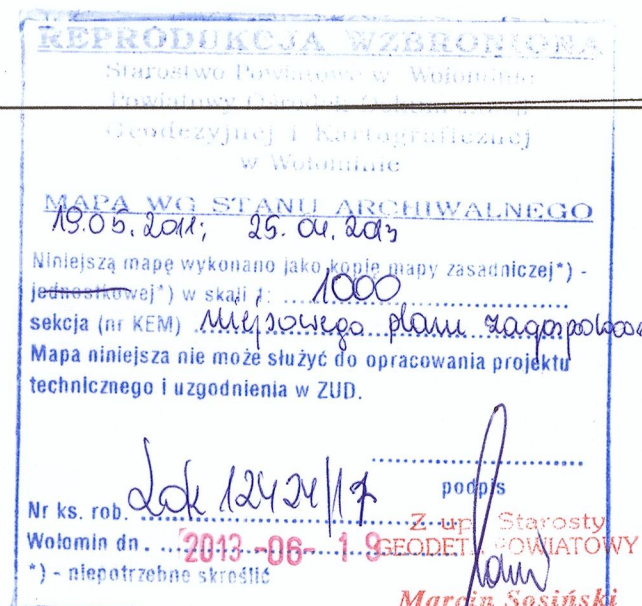 REPRODUKCJA WZBRONIONA
Starostwo Powiatowe w Wołominie
Powiatowy Ośrodek
Geodezyjnej i Kartograficznej
w Wołominie
MAPA WG STANU ARCHIWALNEGO
19.05.2011; 25.04.2013
Niniejszą mapę wykonano jako kopię mapy zasadniczej*) -
jednostkowej*) w skali 1: 1000
sekcja (nr KEM) miejsowego planu
Mapa niniejsza nie może służyć do opracowania projektu
technicznego i uzgodnienia w ZUD.
podpis
Nr ks. rob.
Z up. Starosty
Wołomin dn. 2013 -06- 19
GEODETA POWIATOWY
*) - niepotrzebne skreślić
Marcin Sosiński